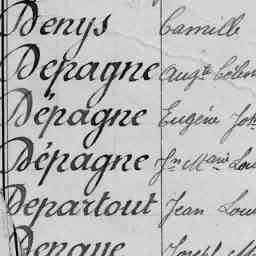 Denys Camille
Depagne Augte
Dépagne Eugène
Dépagne Jn Marie
Departout Jean
Depaye Joseph